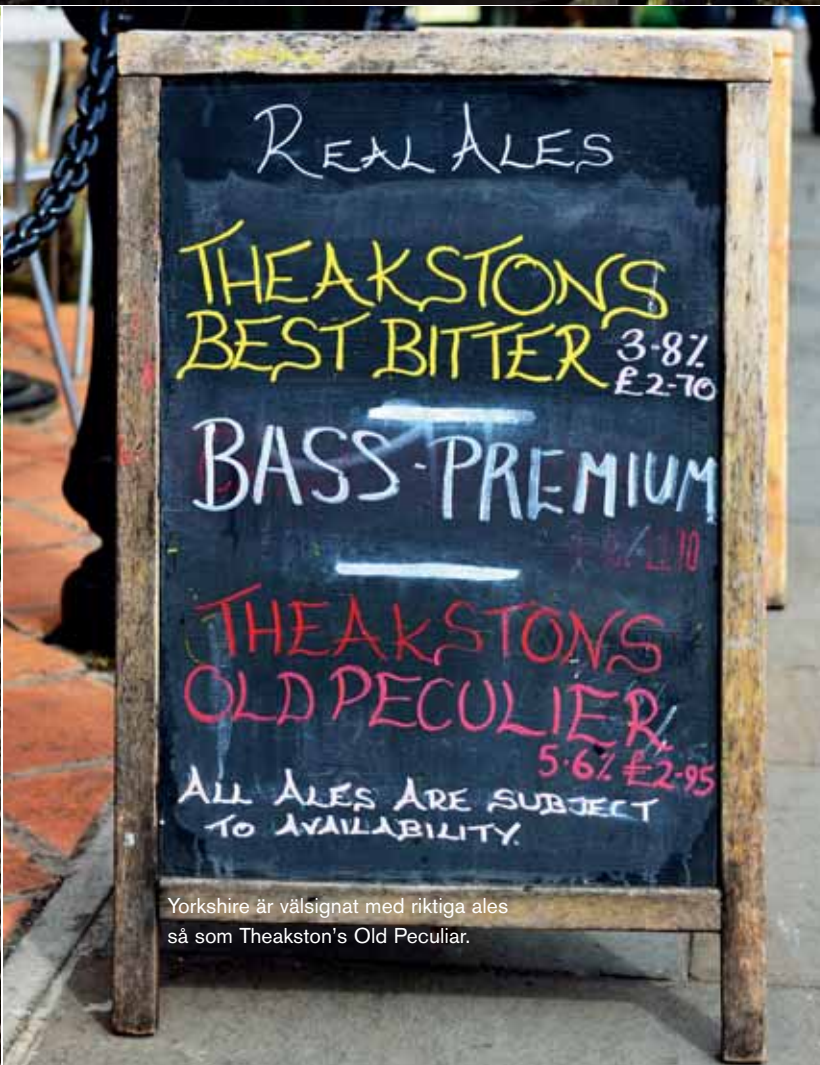 REAL ALES
THEAKSTONS
BEST BITTER
3·8%
£2·70
BASS·PREMIUM
THEAKSTONS
OLD PECULIER
5·6% £2·95
ALL ALES ARE SUBJECT
TO AVAILABILITY.
Yorkshire är välsignat med riktiga ales
så som Theakston's Old Peculiar.